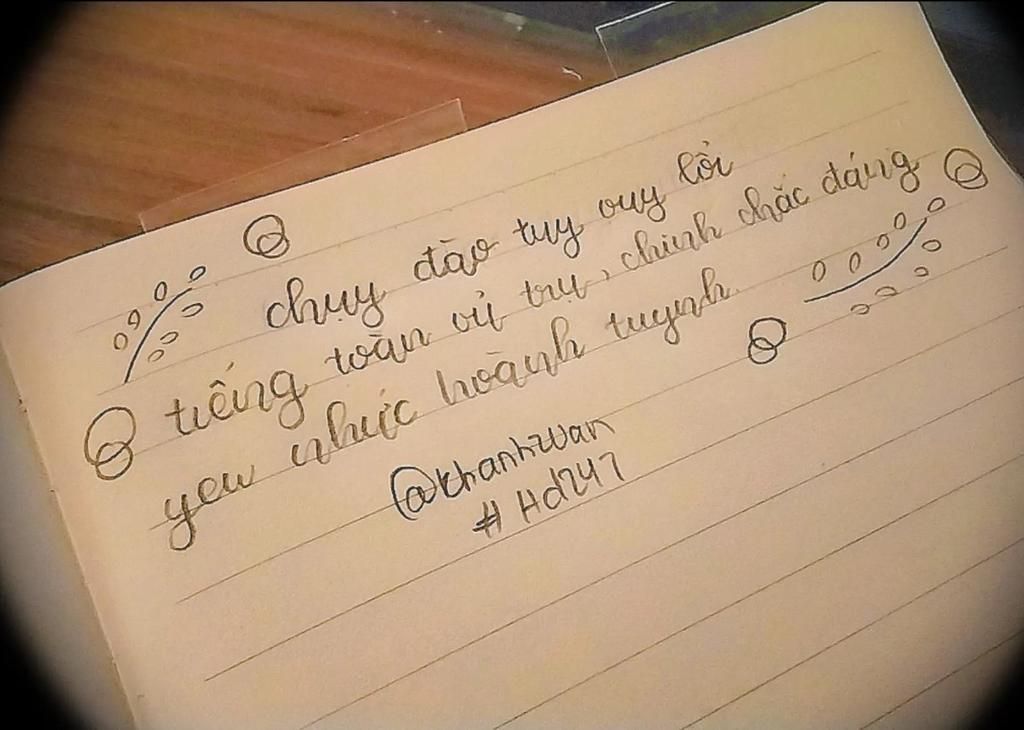 chụy đào tuy ouy lồi
tiếng toàn vủ trụ, chinh chắc đáng
yew nhức hoành tuynh.
@khanhzuan
#Hd247